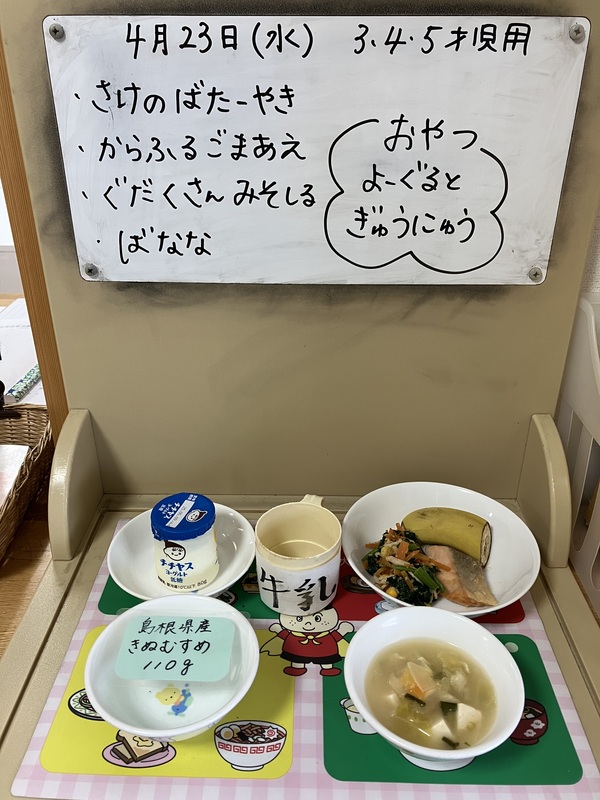 4月23日(水) 3.4.5才児用
・さけのばたーやき
・からふるごまあえ
・ぐだくさんみそしる
・ばなな
おやつ
よーぐると
ぎゅうにゅう
チチヤス
チチヤス
ヨーグルト
低糖
80g
牛乳
島根県産
きぬむすめ
110g